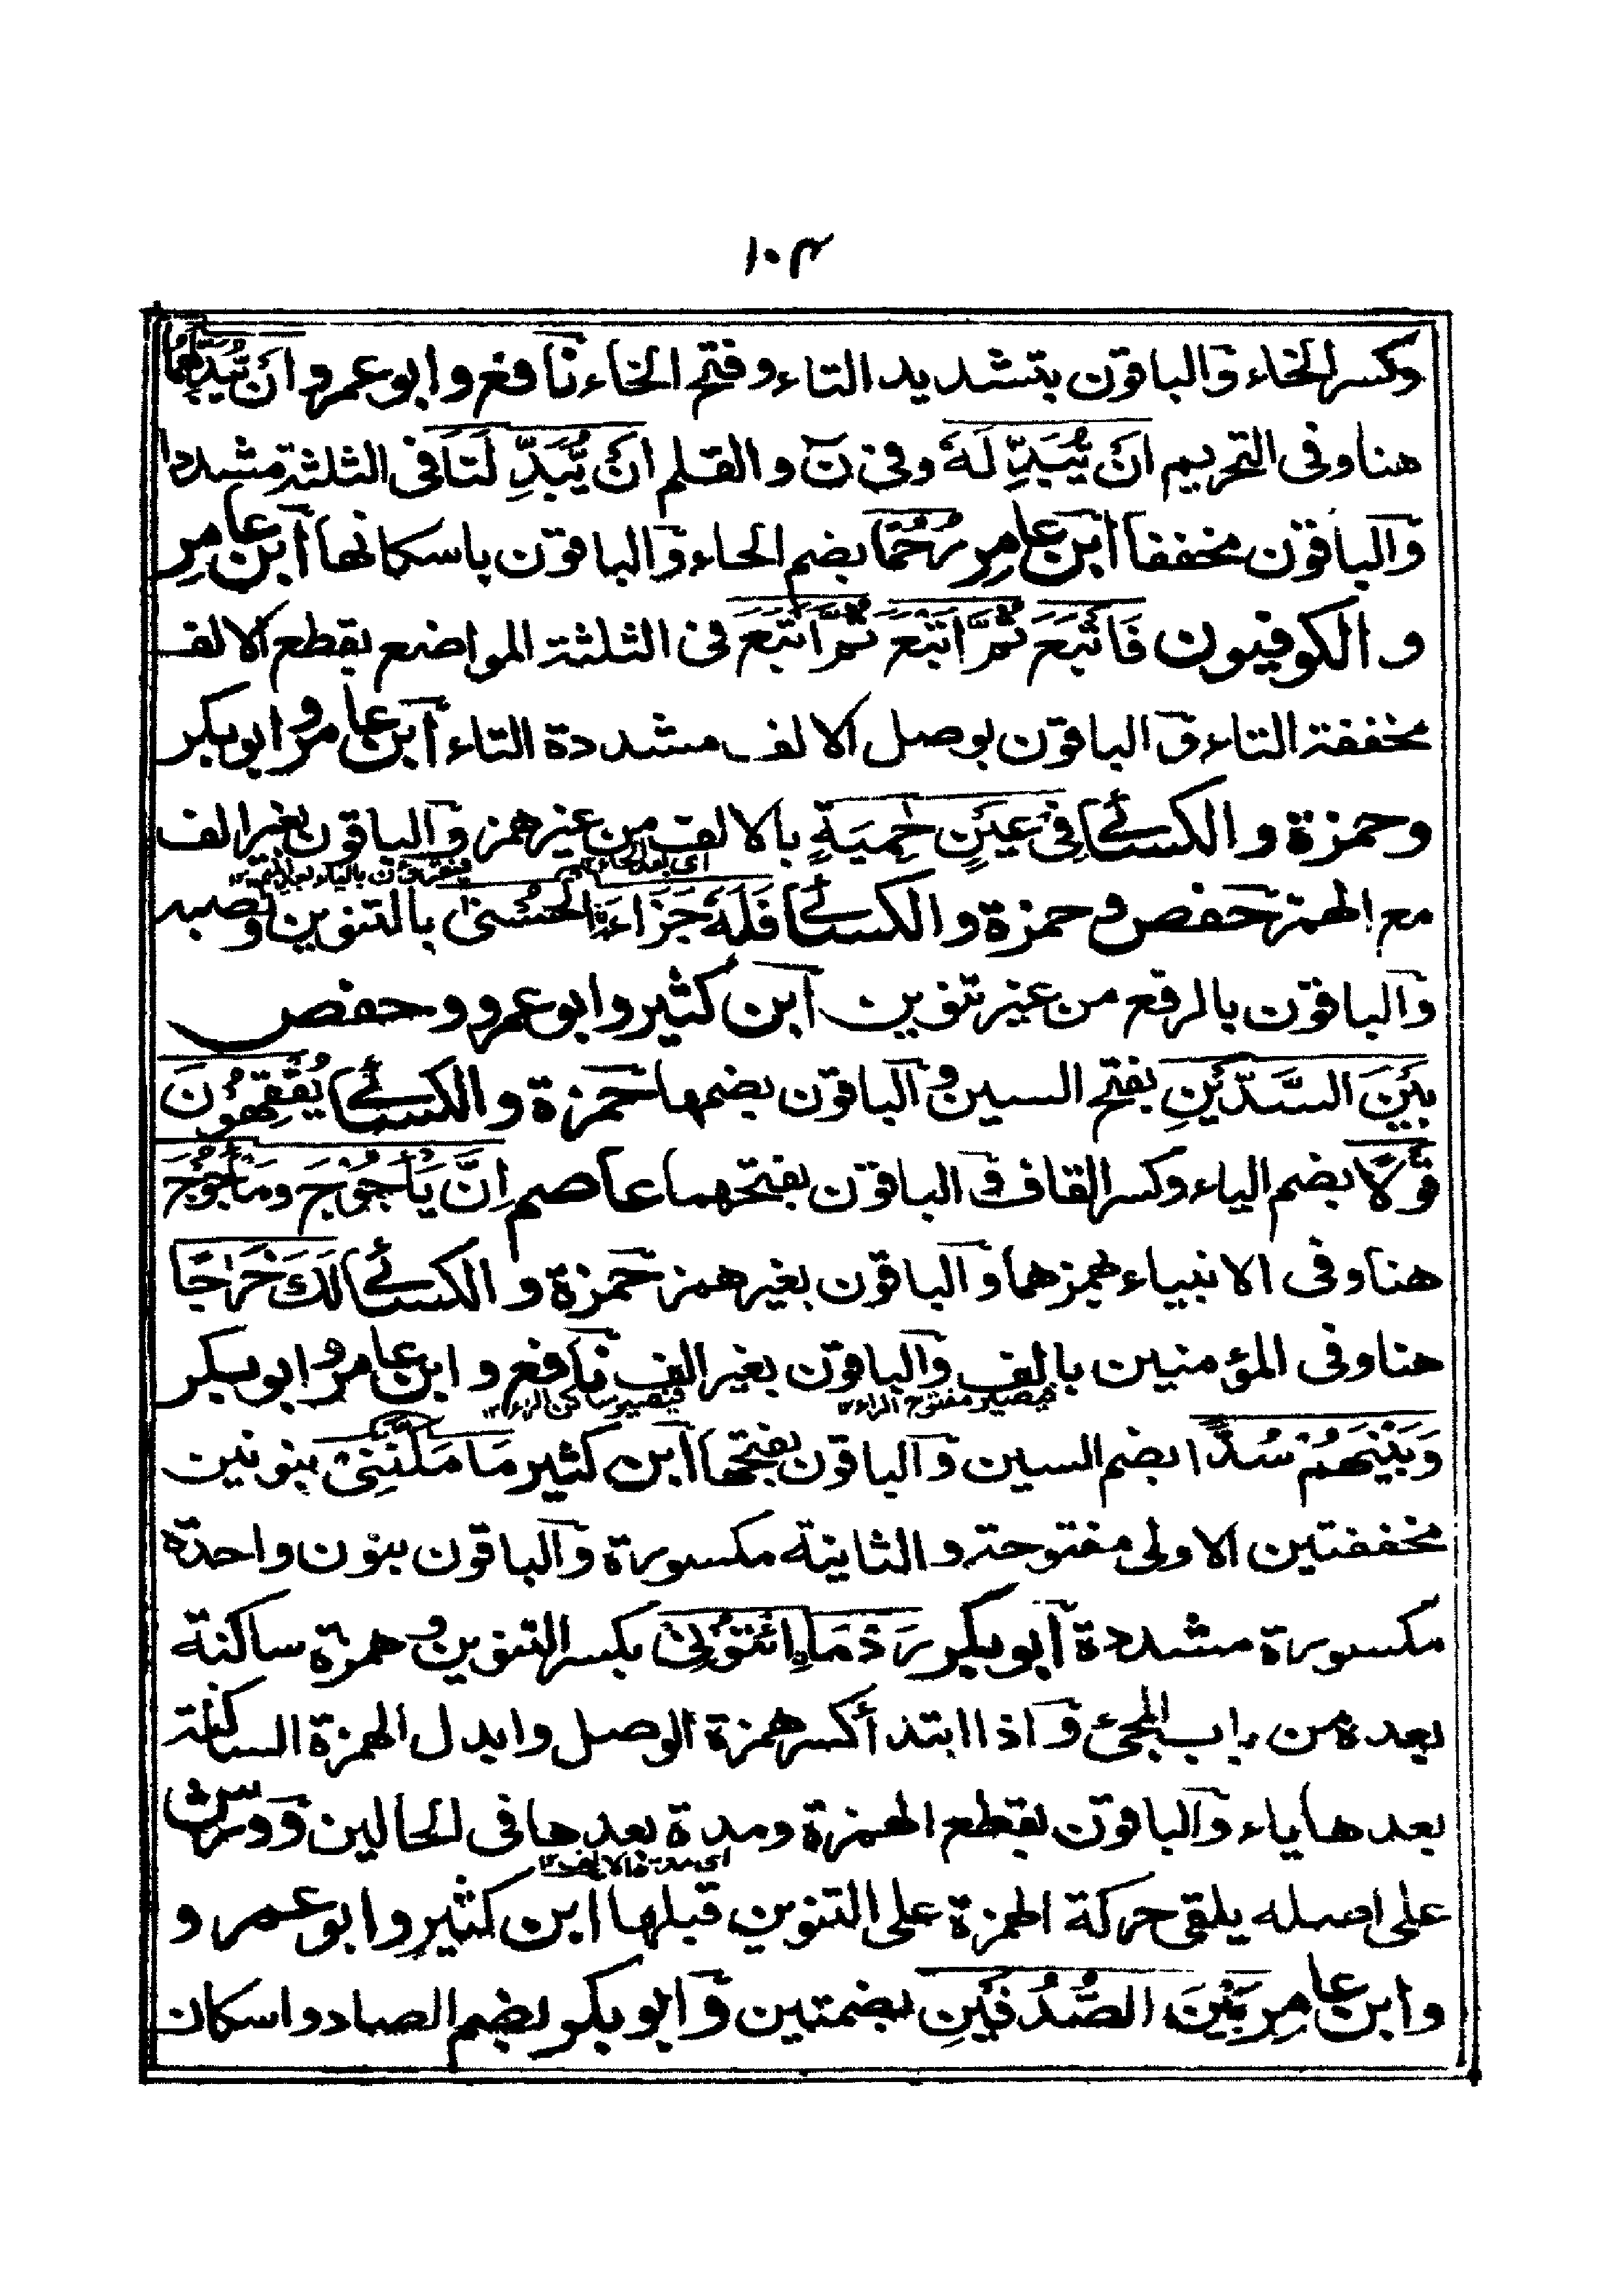 ١٠٤
وكسر الخاء والباقون بتشديد التاء وفتح الخاء نافع وابو عمرو اَنْ يُّبَدِّلَهُمَا
هنا وفى التحريم اَنْ يُّبَدِّلَهٗ وفى نٓ والقلم اَنْ يُّبَدِّلَنَا فى الثلثة مشددا
والباقون مخففا ابن عامر رُحُمًا بضم الحاء والباقون باسكانها ابن عامر
والكوفيون فَاَتْبَعَ ثُمَّ اَتْبَعَ ثُمَّ اَتْبَعَ فى الثلثة المواضع بقطع الالف
مخففة التاء والباقون بوصل الالف مشددة التاء ابن عامر وابو بكر
وحمزة والكسائى فِىْ عَيْنٍ حٰمِيَةٍ بالالف من غير همز والباقون بغير الف
اى بعد الحاء ١٢
فتقرؤن بالياء بعد الميم ١٢
مع الهمز حفص وحمزة والكسائى فَلَهٗ جَزَاءَ الْحُسْنٰى بالتنوين ونصبه
والباقون بالرفع من غير تنوين ابن كثير وابو عمرو وحفص
بَيْنَ السَّدَّيْنِ بفتح السين والباقون بضمها حمزة والكسائى يُفْقِهُوْنَ
قَوْلًا بضم الياء وكسر القاف والباقون بفتحهما عاصم اِنَّ يَأْجُوْجَ وَمَأْجُوْجَ
هنا وفى الانبياء بهمزهما والباقون بغير همز حمزة والكسائى لَكَ خَرَاجًا
هنا وفى المؤمنين بالف والباقون بغير الف نافع وابن عامر وابو بكر
فيصير مفتوح الراء ١٢
فيصير ساكن الراء ١٢
وَبَيْنَهُمْ سُدًّا بضم السين والباقون بفتحها ابن كثير مَا مَكَّنَنِىْ بنونين
مخففتين الاولى مفتوحة والثانية مكسورة والباقون بنون واحدة
مكسورة مشددة ابو بكر رَدْمَا اِئْتُوْنِىْ بكسر التنوين وهمزة ساكنة
بعده من باب المجئ واذا ابتدأ كسر همزة الوصل وابدل الهمزة الساكنة
بعدها ياء والباقون بقطع الهمزة ومدة بعدها فى الحالين وورش
اى مدة الالف ١٢
على اصله يلقى حركة الهمزة على التنوين قبلها ابن كثير وابو عمر و
وابن عامر بَيْنَ الصُّدُفَيْنِ بضمتين وابو بكر بضم الصاد واسكان